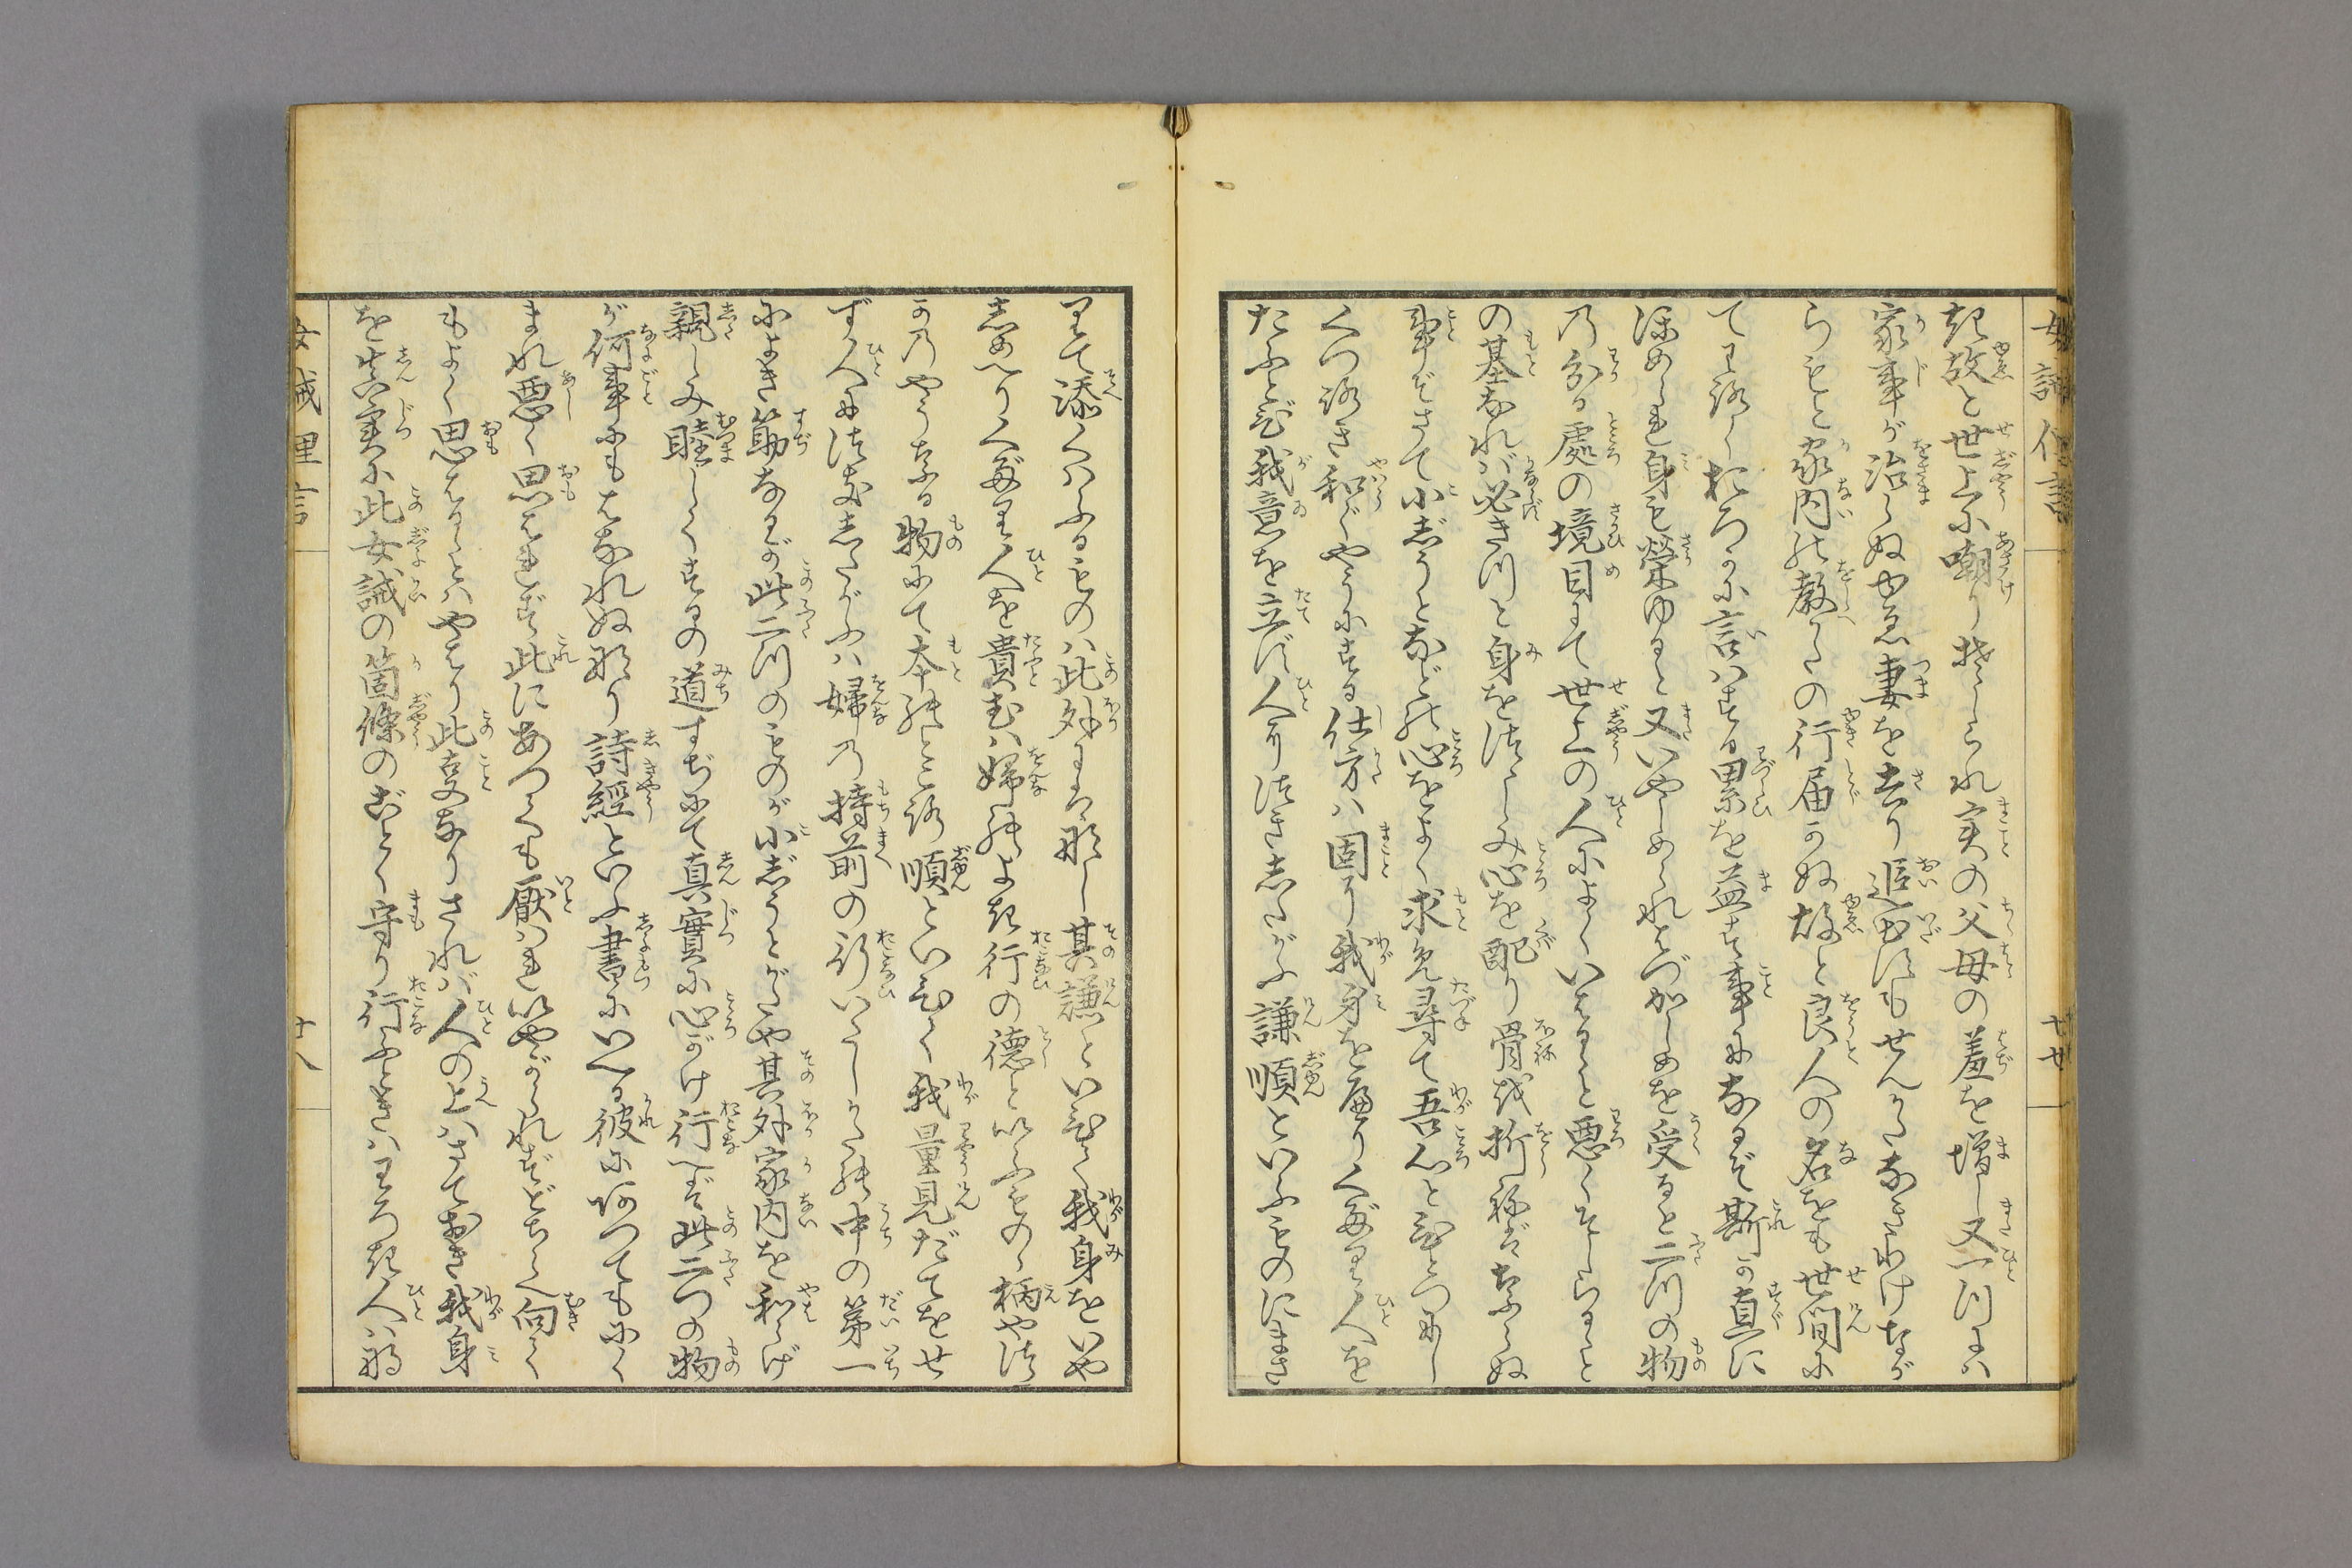 故と世上に嘲り
れ実の父母の羞を増し又一つには
家事が治らぬゆゑ妻を去り追出すもせんかたなきわけなが
らもと家内の教かたの行届かぬ故と良人の名をも世間に
言はする累を益す事になるぞ斯か直に
ほめられ身も榮ゆると又いやしめられはづかしめを受ると二つの物
の分る處の境目にて世上の人によくいはるると悪くそしらるると
の基なれば必きつと身をつつしみ心を配り骨を折ねばならぬ
事ぞさて小じうとなどの心をよく求め尋て吾心とひとつにし
くつろぎ和ぐやうにする仕方は固り我身を扁りくだり人を
たふとび我意を立ず人につきしたがふ謙順といふものにまさ
りて添くはふるものは此外には那し其謙といひて我身をいや
しめへりくだり人を貴むは婦のよき行の徳といふものゝ柄やつ
かのやうなる物にて本のところ順といひて我量見だてをせ
ず人につきしたがふは婦の持前の行いたしかたの中の第一
によき筋なるが此二つのものが小じうとがたや其外家内を和らげ
親しみ睦じくするの道すぢにて真實に心がけ行へば此二つの物
が何事にもはなれぬ那り詩經といふ書にいへる彼に阿つてもにく
まれ悪く思はれず此にあつても厭はれいやがられずどちらへ向て
もよく思はるるとはやはり此事なりされば人の上はさておき我身
を真実に此女誡の箇條のごとく守り行ふときはわろき人は
女誡里言